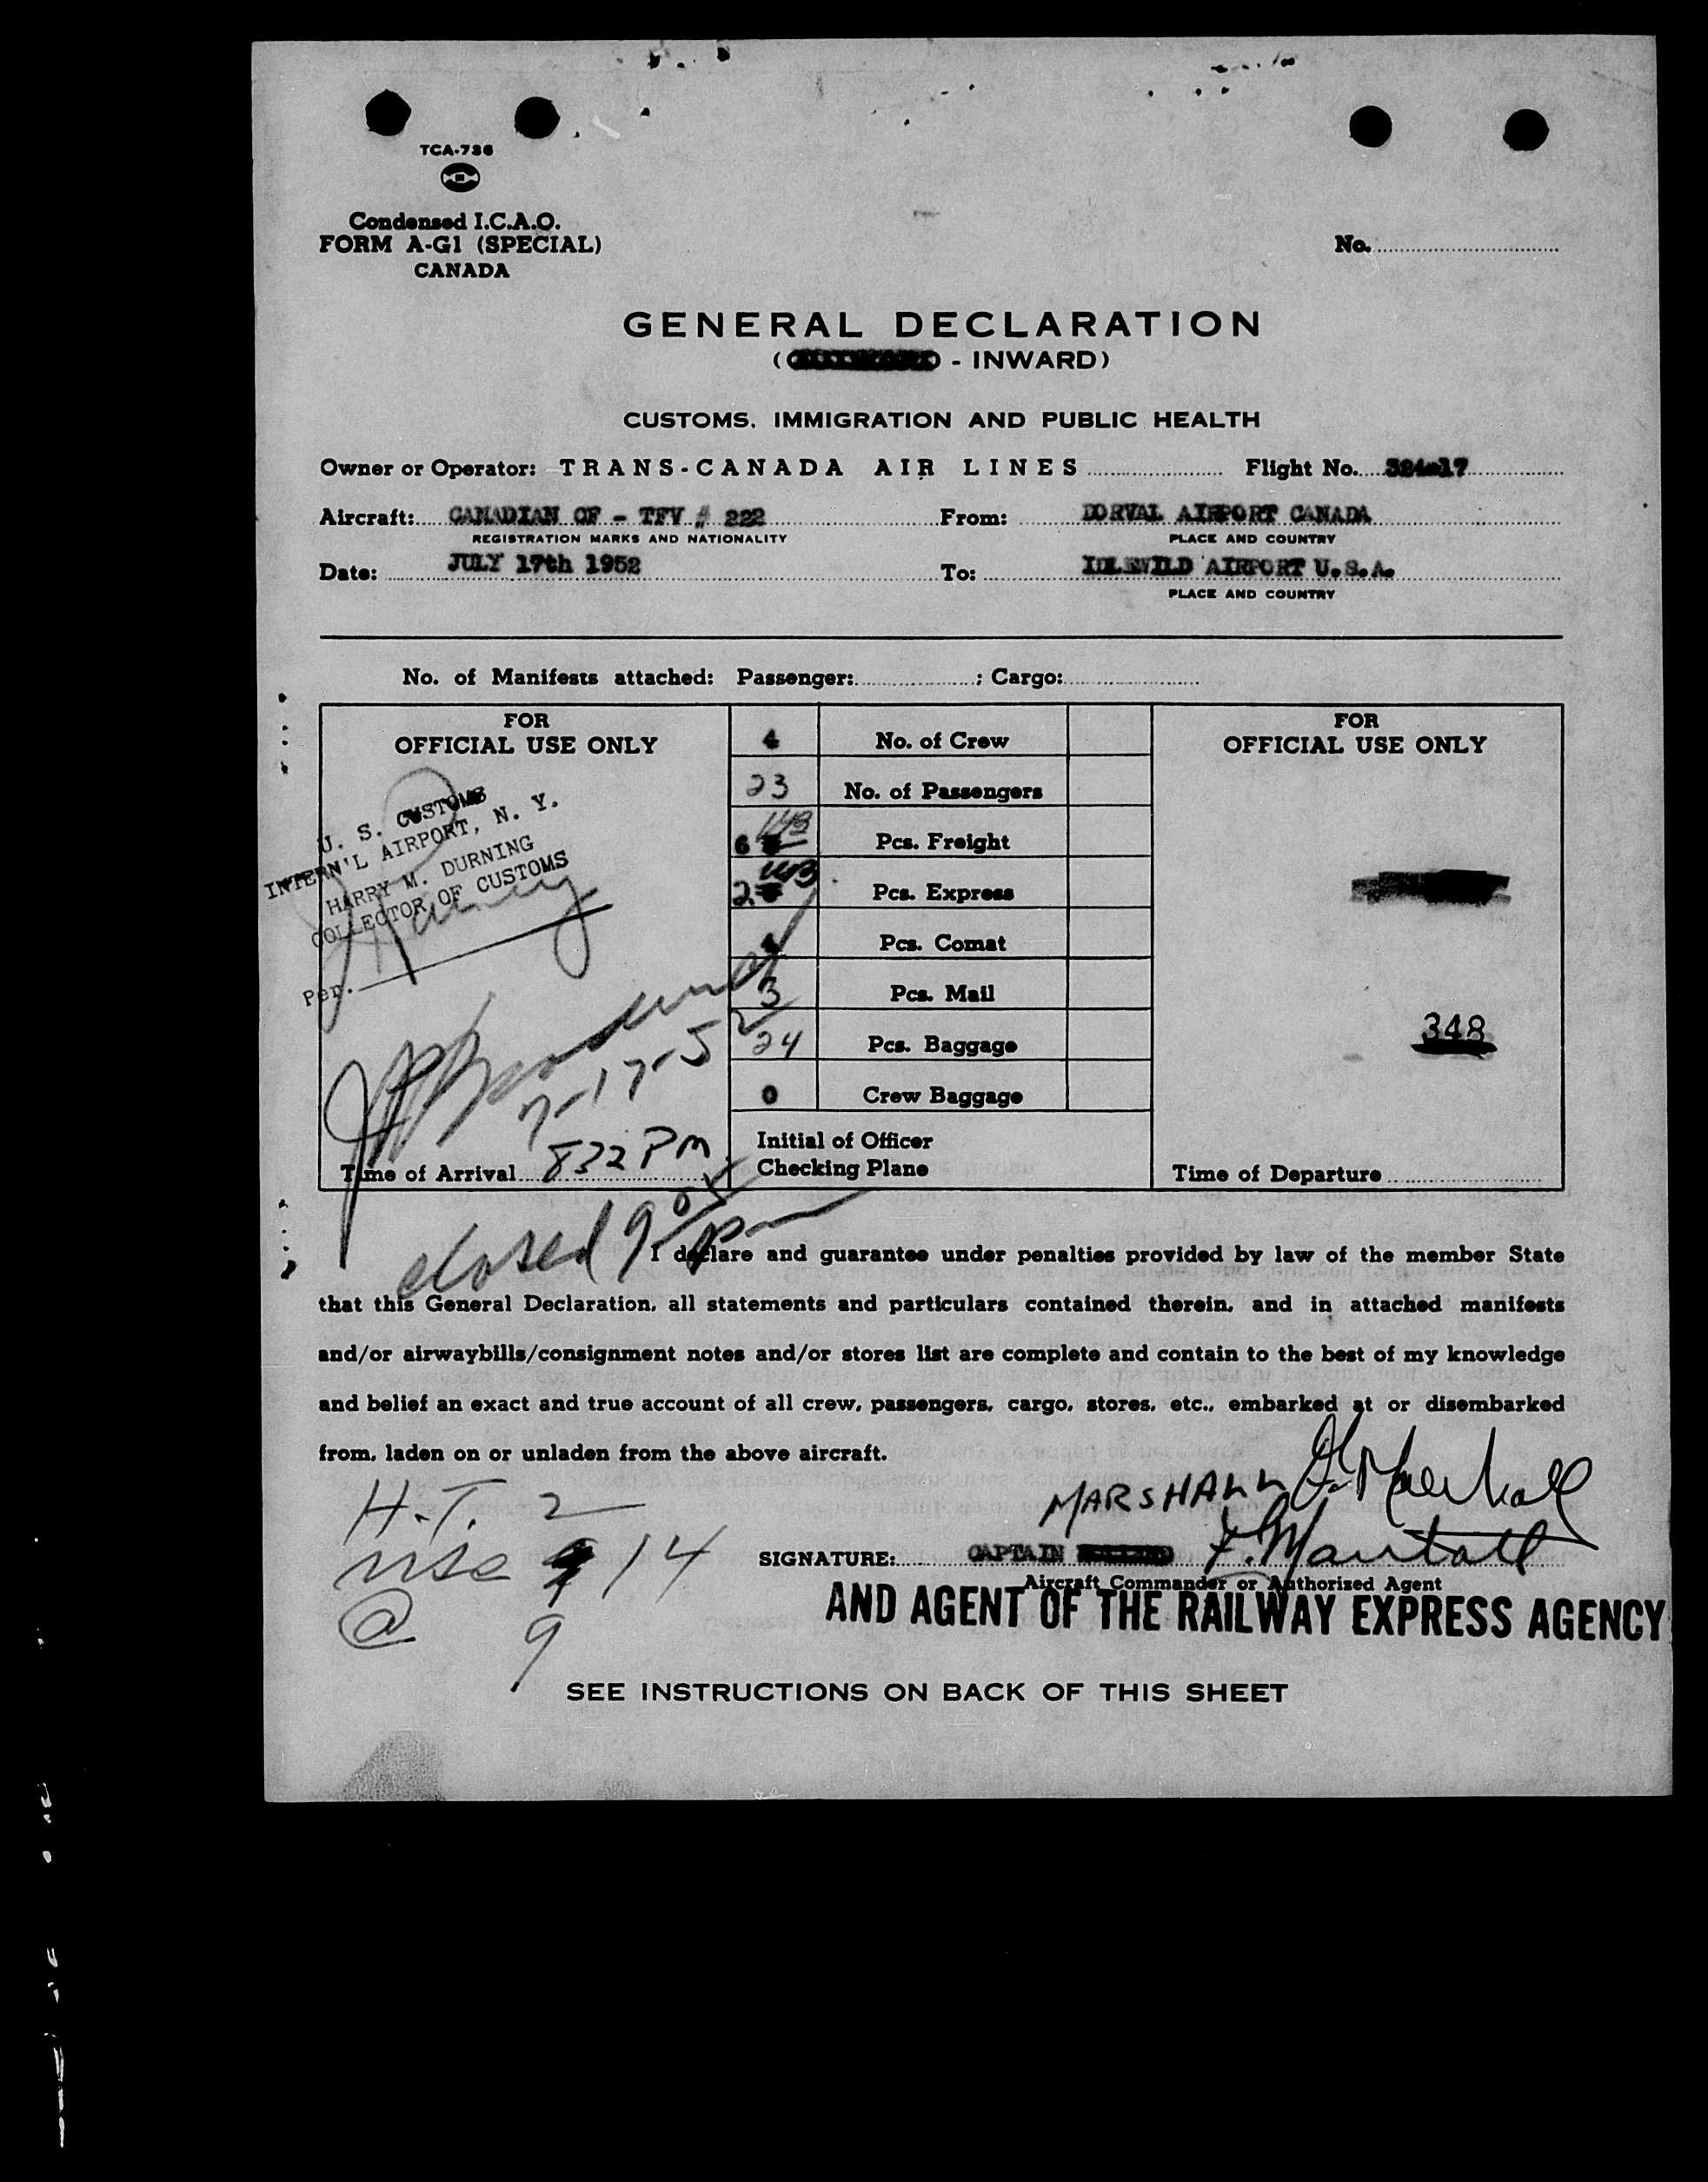 TCA-736
Condensed I.C.A.O.
FORM A-G1 (SPECIAL)
CANADA
No.
GENERAL DECLARATION
( - INWARD)
CUSTOMS, IMMIGRATION AND PUBLIC HEALTH
Owner or Operator: TRANS-CANADA AIR LINES Flight No. 324-17
Aircraft: CANADIAN CF - TFV # 222 From: DORVAL AIRPORT CANADA
REGISTRATION MARKS AND NATIONALITY PLACE AND COUNTRY
Date: JULY 17th 1952 To: IDLEWILD AIRPORT U.S.A.
PLACE AND COUNTRY
No. of Manifests attached: Passenger: ; Cargo:
FOR
OFFICIAL USE ONLY
U. S. CUSTOMS
INTERN'L AIRPORT, N. Y.
HARRY M. DURNING
COLLECTOR OF CUSTOMS
Per.
7-17-52
Time of Arrival 832 PM
4 No. of Crew
23 No. of Passengers
6 Pcs. Freight
2 Pcs. Express
4 Pcs. Comat
3 Pcs. Mail
24 Pcs. Baggage
0 Crew Baggage
Initial of Officer
Checking Plane
FOR
OFFICIAL USE ONLY
348
Time of Departure
closed 905 pm
I declare and guarantee under penalties provided by law of the member State
that this General Declaration, all statements and particulars contained therein, and in attached manifests
and/or airwaybills/consignment notes and/or stores list are complete and contain to the best of my knowledge
and belief an exact and true account of all crew, passengers, cargo, stores, etc., embarked at or disembarked
from, laden on or unladen from the above aircraft.
H.T. 2
USC 14
@ 9
MARSHALL
SIGNATURE: CAPTAIN
Aircraft Commander or Authorized Agent
AND AGENT OF THE RAILWAY EXPRESS AGENCY
SEE INSTRUCTIONS ON BACK OF THIS SHEET